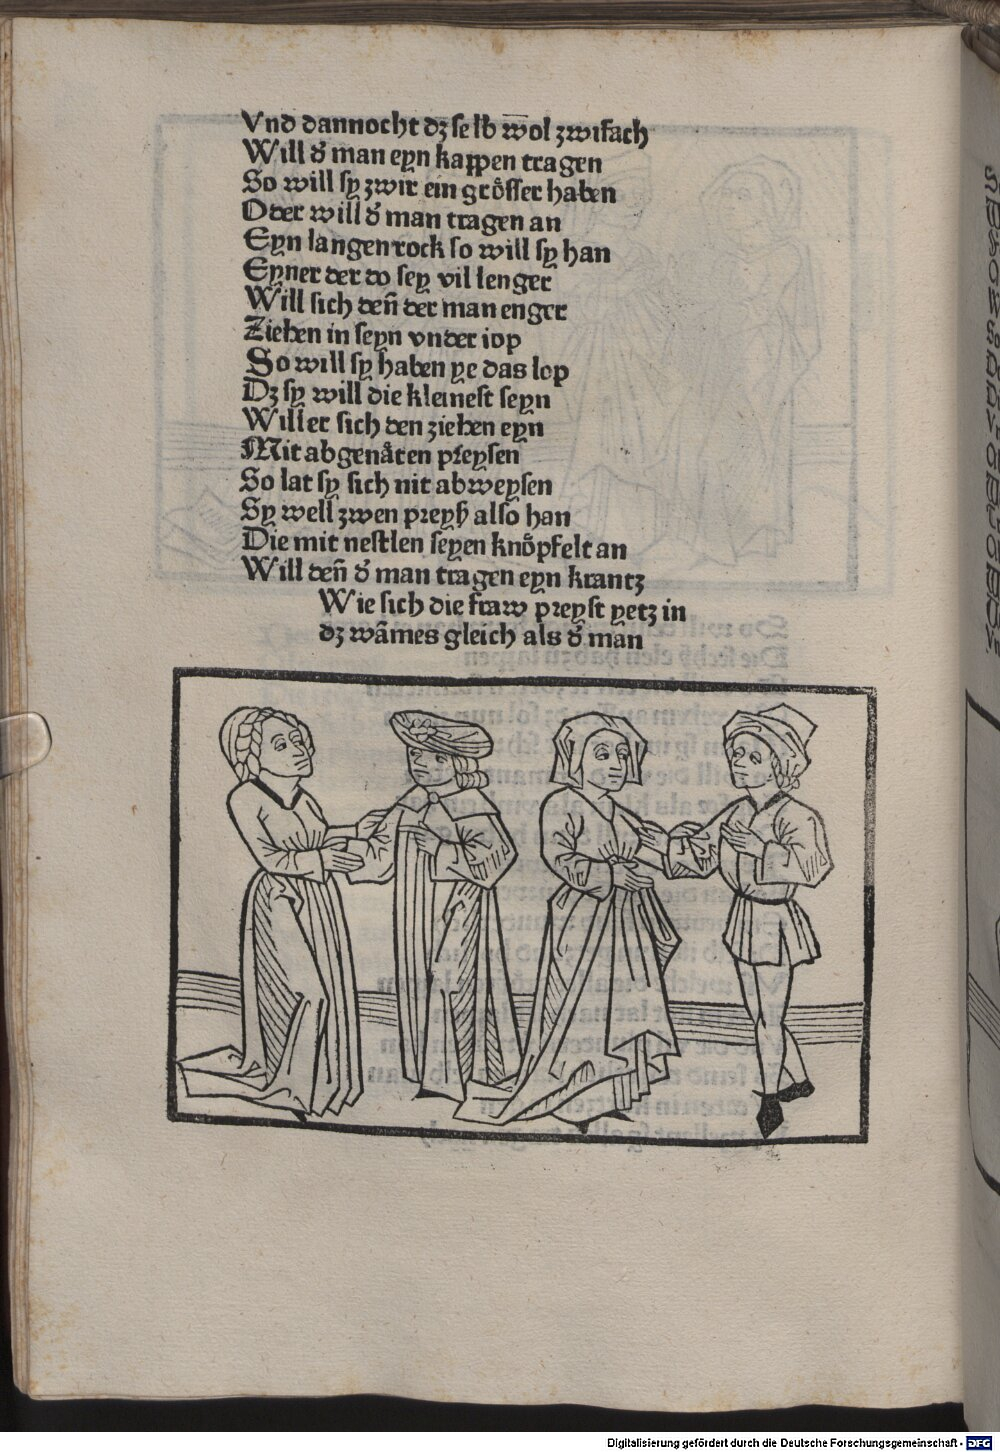 Vnd dannocht dz selb wol zwifach
Will d̕ man eyn kappen tragen
So will sy zwir ein grösser haben
Oder will d̕ man tragen an
Eyn langen rock so will sy han
Eyner der do sey vil lenger
Will sich deñ der man enger
Ziehen in seyn vnder iop
So will sy haben ye das lop
Dz sy will die kleinest seyn
Will er sich den ziehen eyn
Mit abgenäten preysen
So lat sy sich nit abweysen
Sy well zwen preyß also han
Die mit nestlen seyen knöpfelt an
Will deñ d̕ man tragen eyn krantz
Wie sich die fraw preyst yetz in
dz wãmes gleich als d̕ man
Digitalisierung gefördert durch die Deutsche Forschungsgemeinschaft - DFG